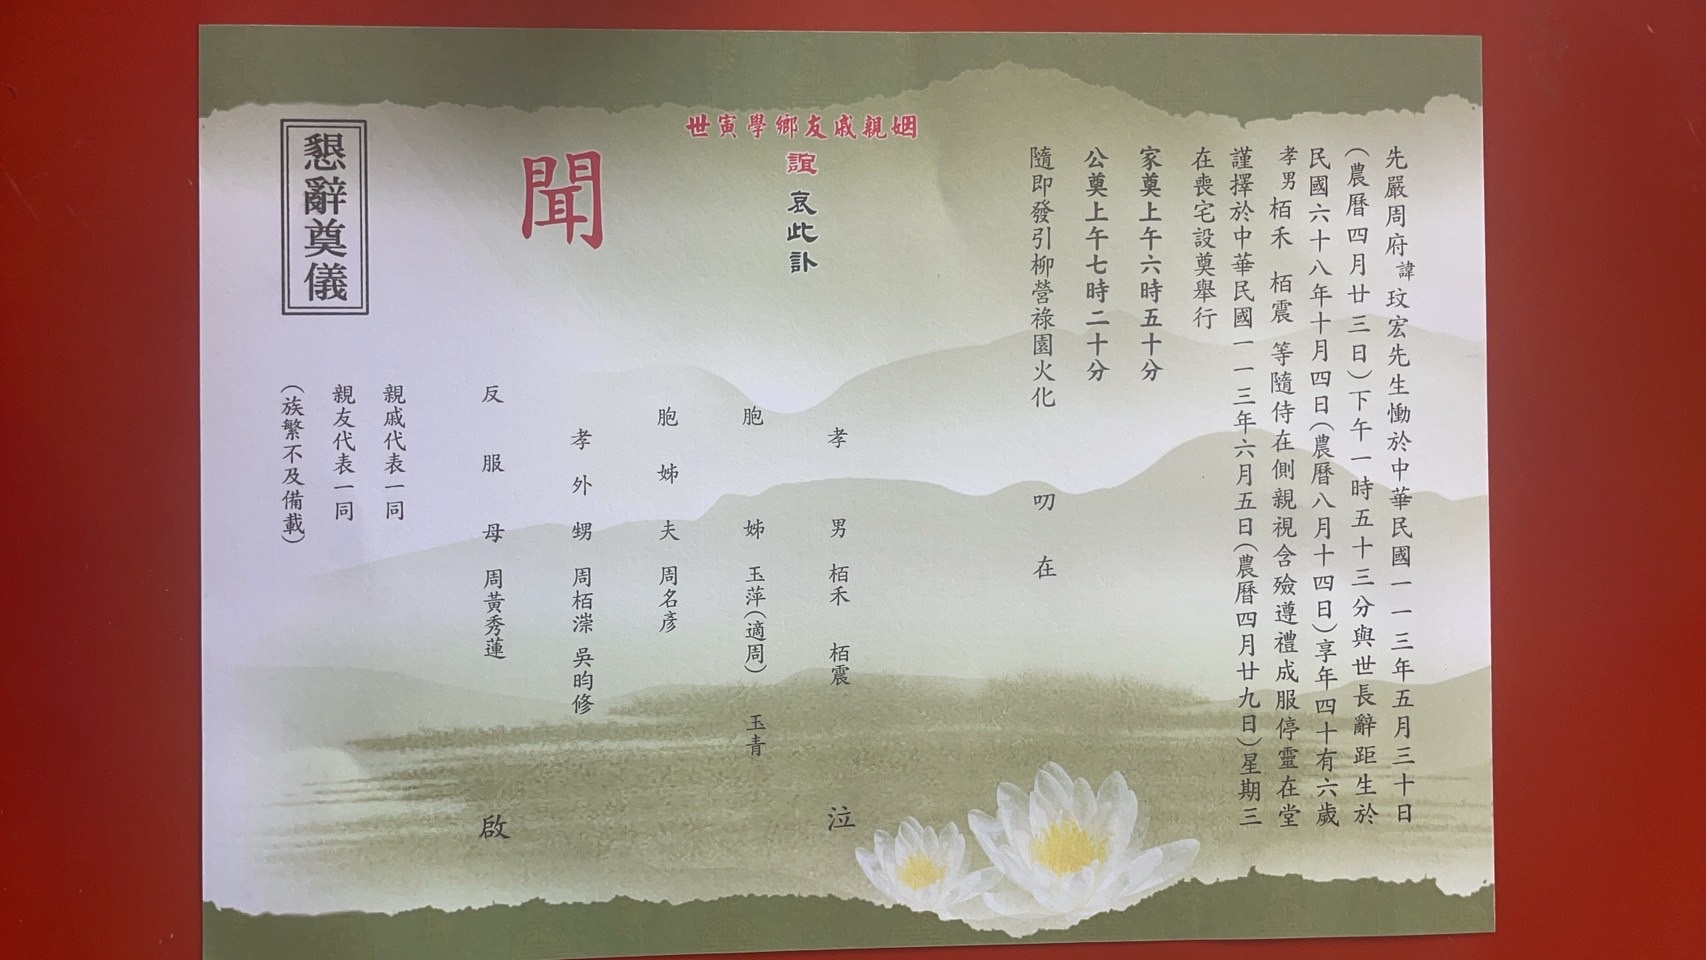 先嚴周府諱玟宏先生慟於中華民國一一三年五月三十日
(農曆四月廿三日)下午一時五十三分與世長辭距生於
民國六十八年十月四日(農曆八月十四日)享年四十有六歲
孝男栢禾 栢震 等隨侍在側親視含殮遵禮成服停靈在堂
謹擇於中華民國一一三年六月五日(農曆四月廿九日)星期三
在喪宅設奠舉行
家奠上午六時五十分
公奠上午七時二十分
隨即發引柳營祿園火化
叨在
姻親戚友鄉學寅世
誼 哀此訃
聞
孝男 栢禾 栢震 泣
胞姊 玉萍(適周) 玉青
胞姊夫 周名彥
孝外甥 周栢漴 吳昀修
反服母 周黃秀蓮 啟
親戚代表一同
親友代表一同
(族繁不及備載)
懇辭奠儀